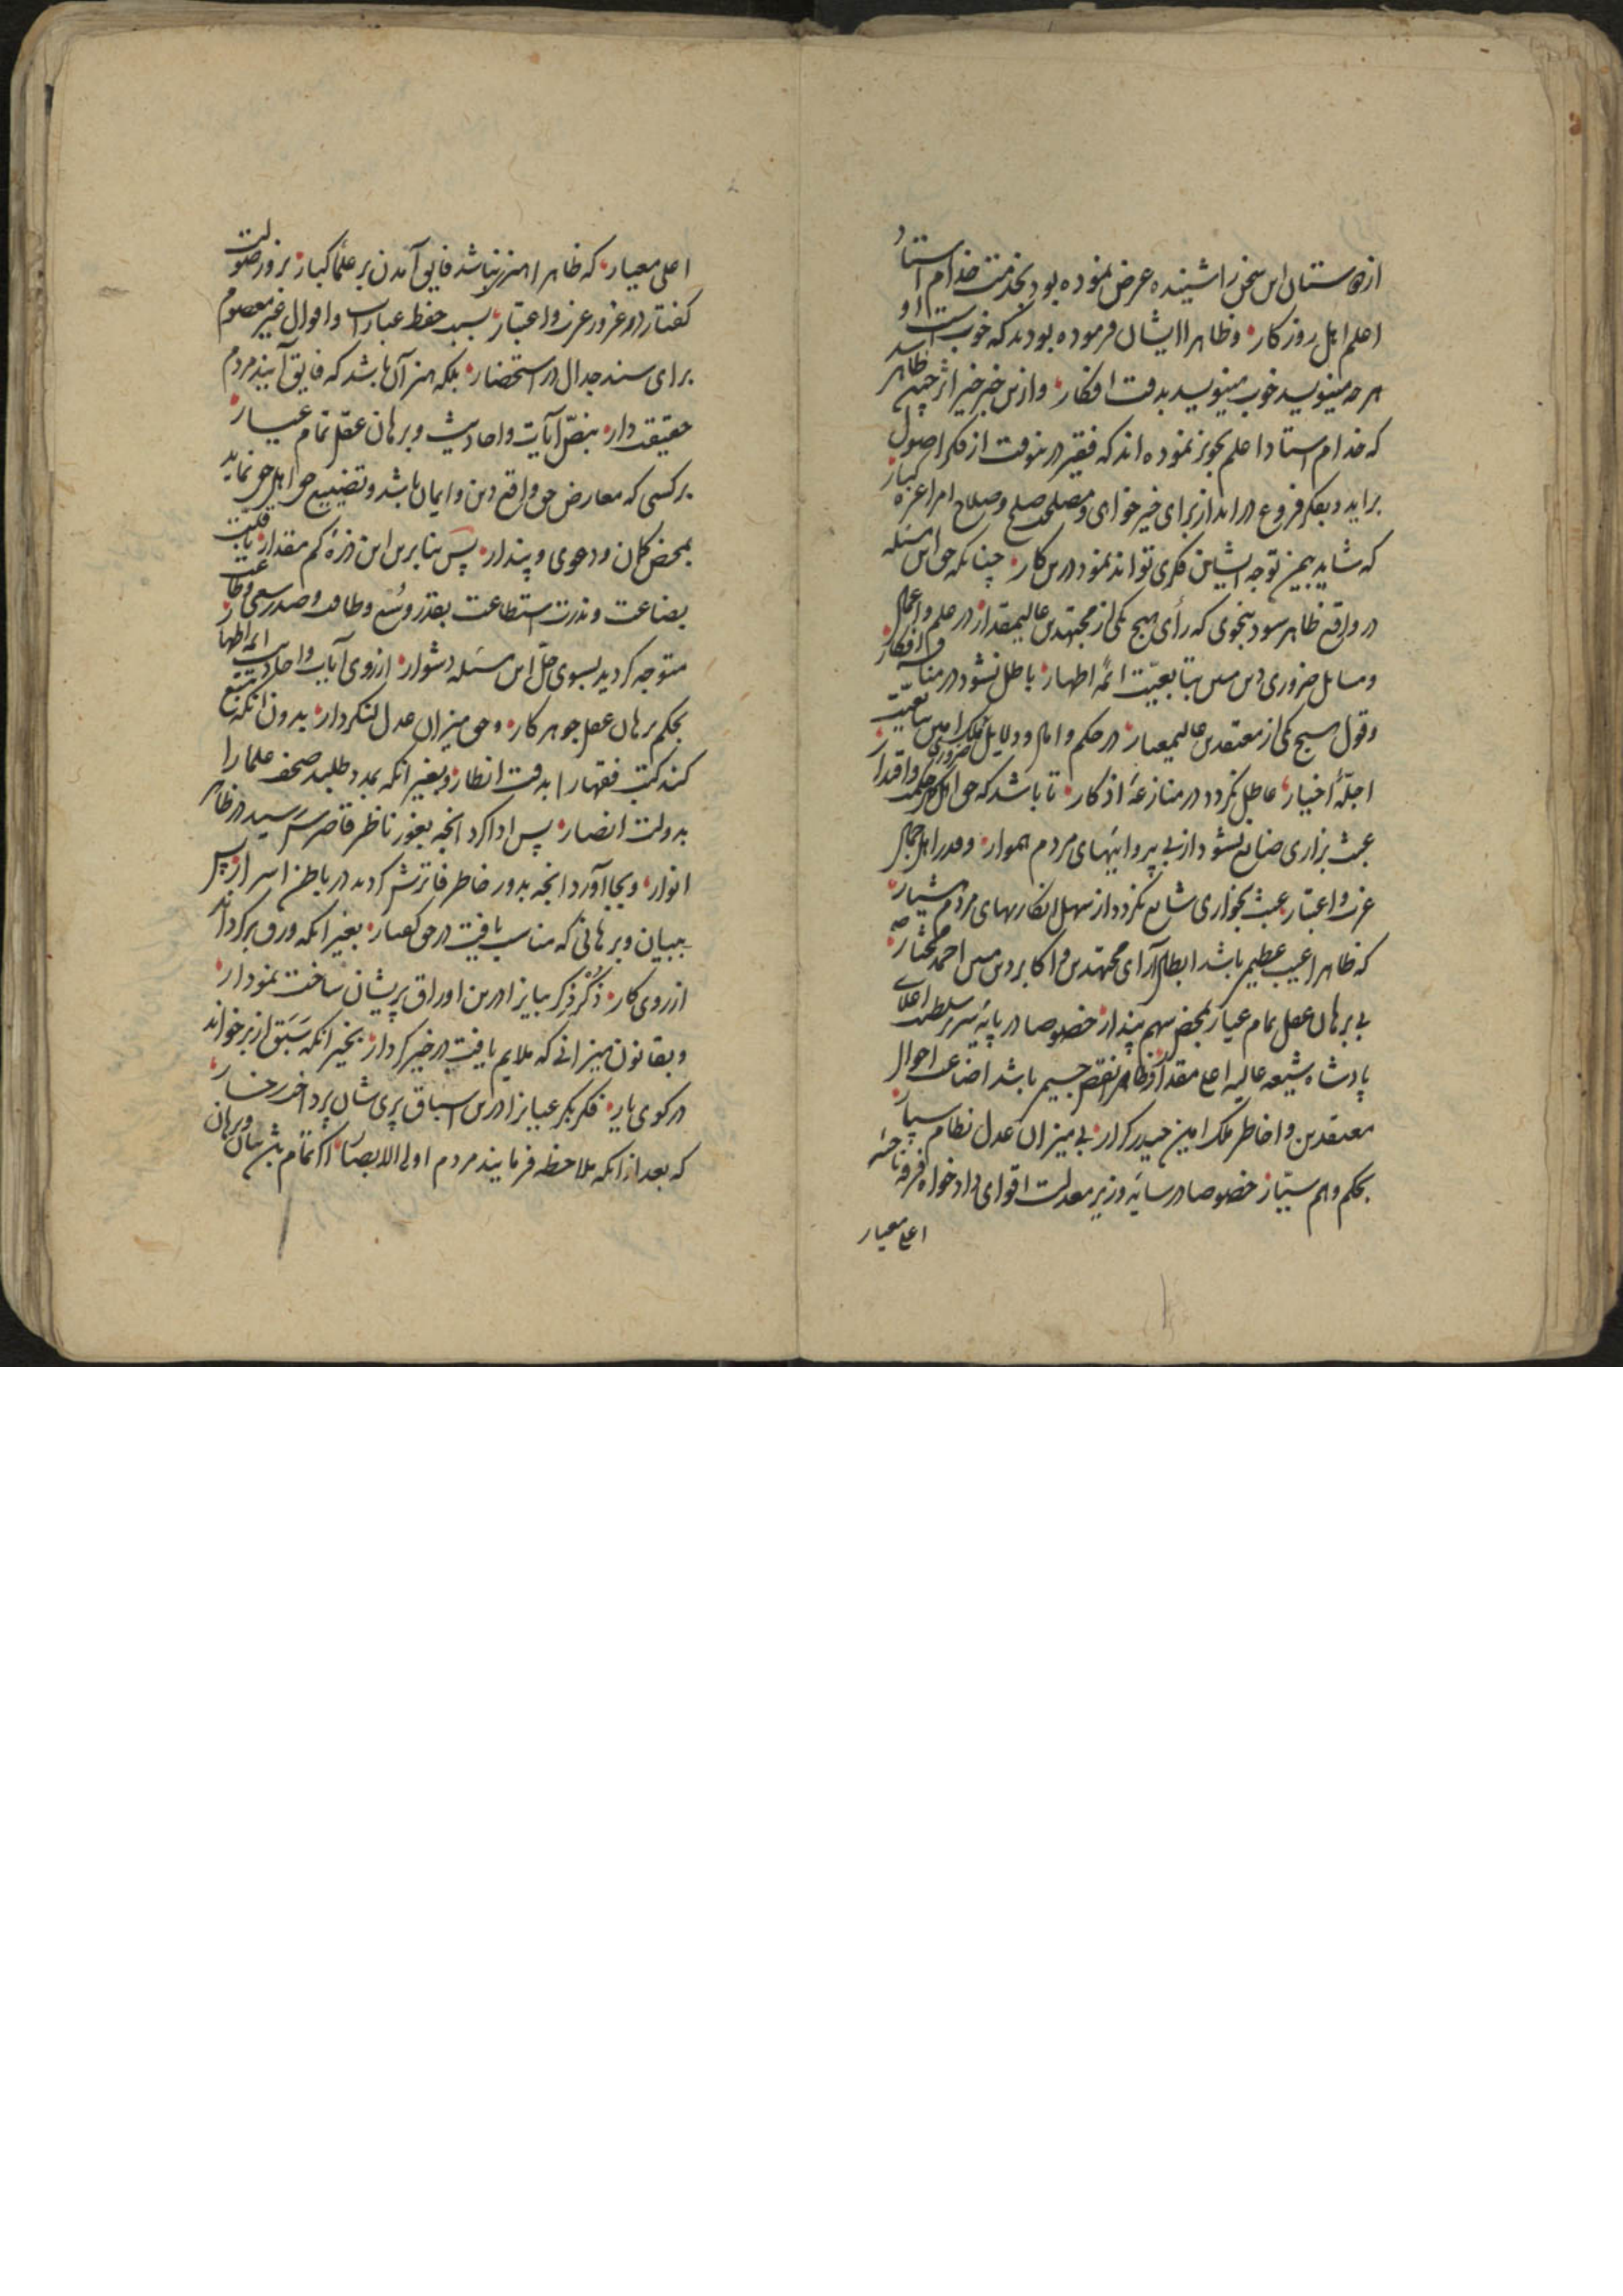 از دوستان این سخن را شنیده عرض نموده بود بخدمت خدام استاد
اعلم اهل روزکار وظاهرا ایشان فرموده بودند که خوبست او
هرچه مینویسد خوب مینویسد بدقت افکار وازین خبر خیر اثر چنین ظاهر
که خدام استاد اعلم تجویز نموده اند که فقیر درینوقت از فکر اصول
براید وبفکر فروع دراید از برای خیر خواهی ومصلحت صلح وصلاح امر اعزه کبار
که شاید بیمن توجه ایشان فکری تواند نمود درین کار چنانکه حق این مسئله
در واقع ظاهر سود بنحوی که رأی هیچ یکی از مجتهدین عالیمقدار در علم واعمال
ومسایل ضروری دین مبین بتابعیّت ائمهٔ اطهار باطل نشود در افکار
وقول هیچ یکی از معتقدین عالیمعیار در حکم و دلایل ضروری بتابعیّت
اجلّهٔ اخیار عاطل نکردد در منازعهٔ اذکار تا باشد که حق اهل واقدار
عبث بزاری ضایع نشود از بی پروائیهای مردم هموار وقدر اهل
عزت واعتبار عبث بخواری شایع نکردد از سهل انکاریهای مردم هشیار
که ظاهرا عیب عظیم باشد ابطال آرای مجتهدین واکابر دین مبین احمد مختار
بی برهان عقل تمام عیار بمحض سهم پندار خصوصا در پایهٔ سریر سلطنت اعلای
پادشاه شیعه عالیه اعلی مقدار وظاهرا نقص جسیم باشد اضاعت احوال
معتقدین واخاطر ملک امین حیدر کرار بی میزان عدل نظام
بحکم وهم سیّار خصوصا در سایهٔ وزیر معدلت اقوای دادخواه فرقه ناجیه
اعلی معیار
اعلی معیار که ظاهرا هنر نباشد فایق آمدن بر علماء کبار بزور صولت
کفتار و غرور عزت واعتبار بسبب حفظ عبارات واقوال غیر معصوم
برای سند جدال در استحضار بلکه هنر آن باشد که فایق آیند مردم
حقیقت دار بنصّ آیات واحادیث وبرهان عقل تمام عیار
بر کسی که معارض حق واقع دین وایمان باشد وتضییع حق اهل حق نماید
بمحض کمان ودعوی وپندار پس بنابرین این ذرّهٔ کم مقدار با قلّت
بضاعت وندرت استطاعت بقدر وُسع وطاقت
متوجه کردید بسوی حلّ این مسئله دشوار از روی آیات واحادیث ائمه اطهار
بحکم برهان عقل جوهر کار وحق میزان عدل لنکردار بدون آنکه تتبّع
کند کتب فقها را بدقت انظار وبغیر آنکه بمدد طلبد صحف علما را
بدولت انصار پس ادا کرد آنچه بغور ناظر قاصرش رسید در ظاهر
انوار وبجا آورد آنچه بدور خاطر فاترش کردید در باطن اسرار پس
ببیان وبرهانی که مناسب یافت در حق کفتار بغیر آنکه ورق برکرداند
از روی کار ذُکر ذِکر بیابرا درین اوراق پریشان ساخت نمودار
وبقانون میزانی که ملایم یافت در خیر کردار بغیر آنکه سَبَق از بر خواند
در کوی یار فکر بکر درین اسباق پری شان پرداخت رخسار
که بعد از آنکه ملاحظه فرمایند مردم اولی الابصار اکر تمام باشد بیان وبرهان